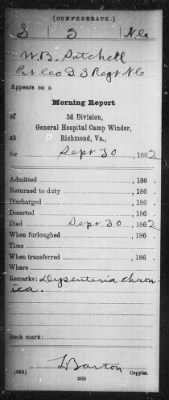 (CONFEDERATE.)
S 3 N.C.
W. B. Satchell
Pvt Co D 3 Regt N C
Appears on a
Morning Report
of 3d Division,
General Hospital Camp Winder,
at Richmond, Va.,
for Sept 30, 1862
Admitted, 186
Returned to duty, 186
Discharged, 186
Deserted, 186
Died Sept 30, 1862
When furloughed, 186
Time
When transferred, 186
Where
Remarks: Dysenteria chron
ica.
Book mark:
Barton
Copyist.